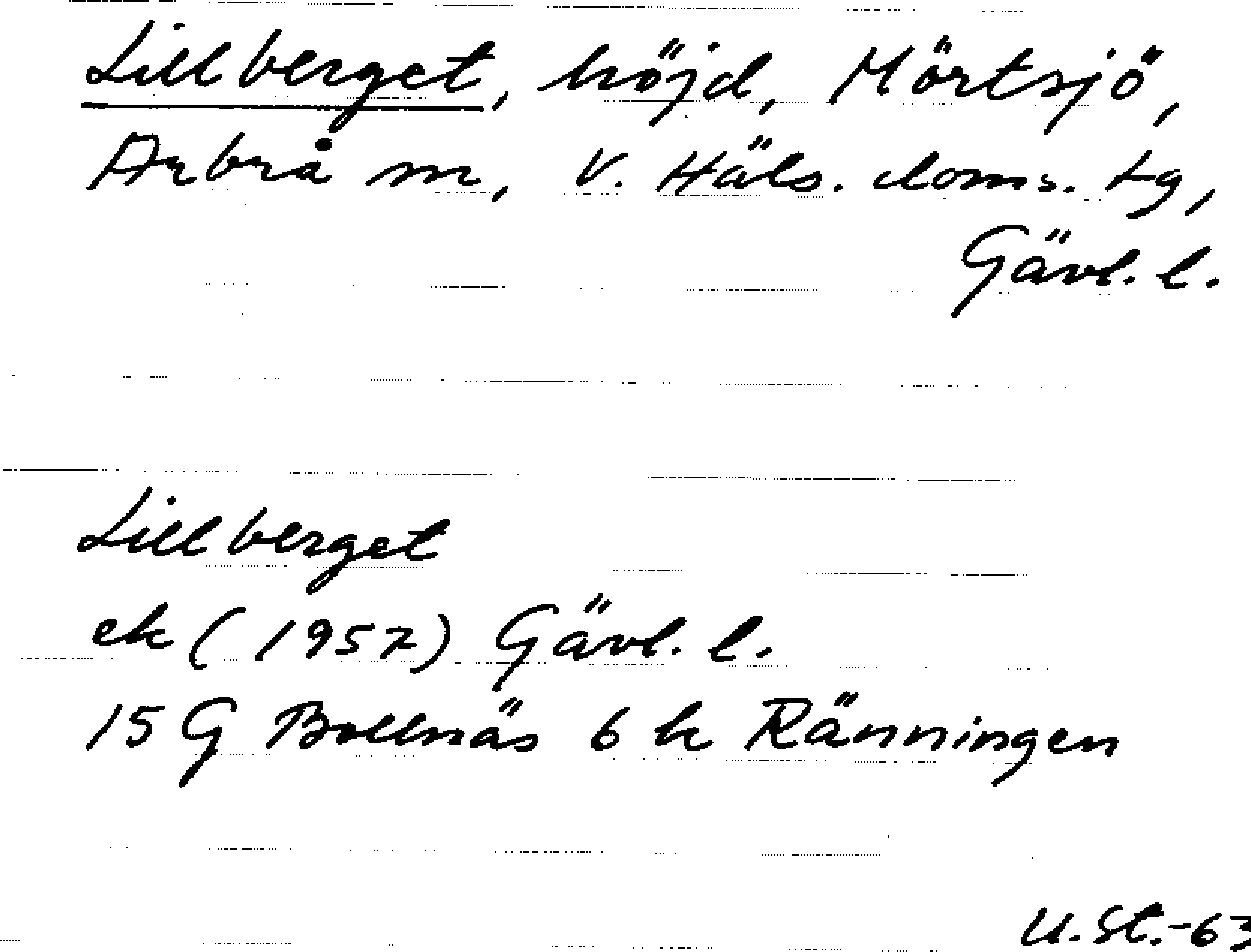 Lillberget, höjd, Mörtsjö,
Arbrå sn, V. Häls. doms. tg,
Gävl. l.
Lillberget
ek (1957) Gävl. l.
15 G Bollnäs 6 h Ränningen
U.St.-63